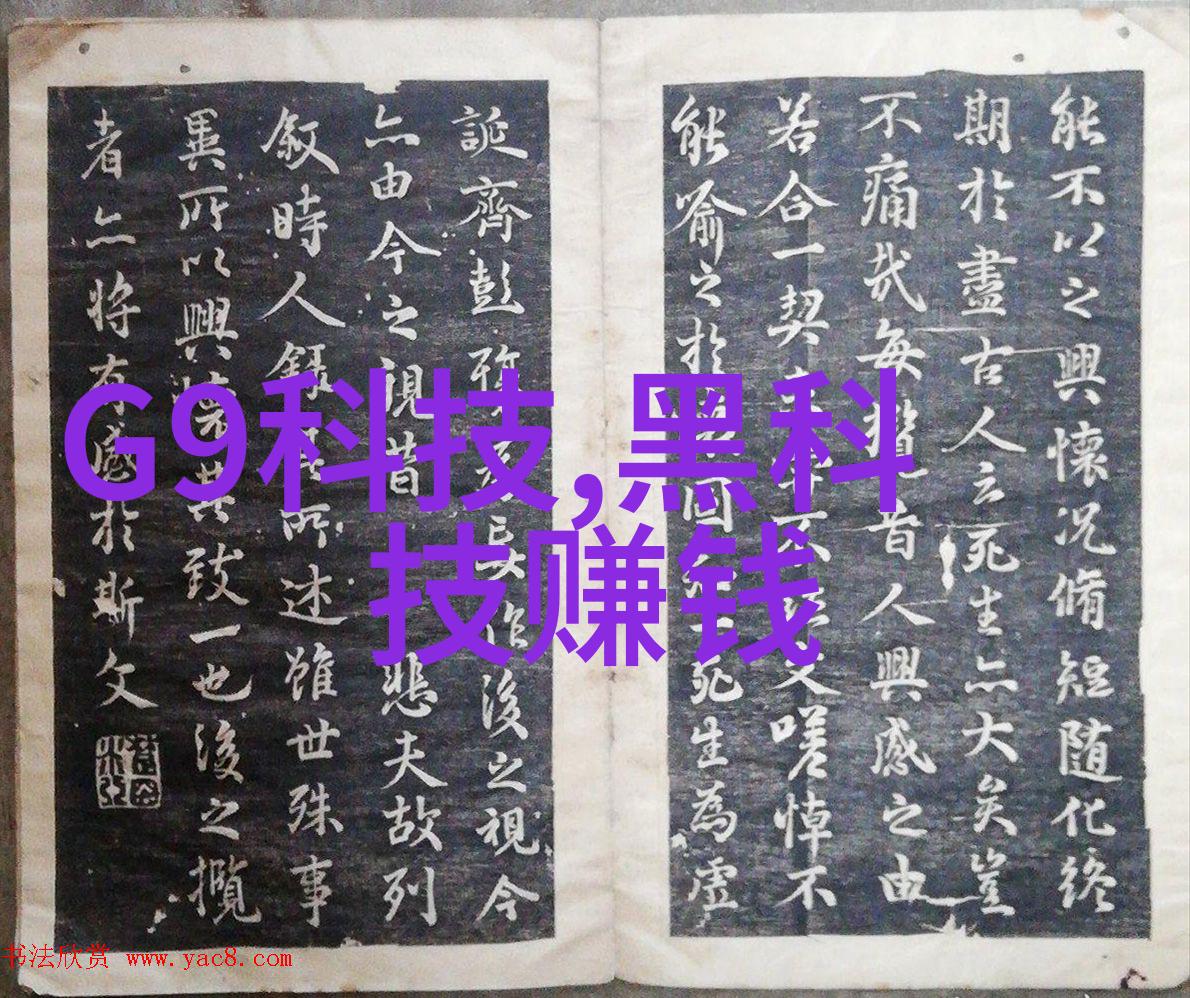 能不以之興懷況脩短随化終
期於盡古人云死生亦大矣豈
不痛哉每攬昔人興感之由
若合一契不文嗟悼不
能喻之於固死生為虛
誕齊彭作後之視今
亦由今之視昔悲夫故列
敘時人錄其所述雖世殊事
異所以興懷其致一也後之攬
者亦将有感於斯文
G9科技,黑科
技赚钱
书法欣赏 www.yac8.com